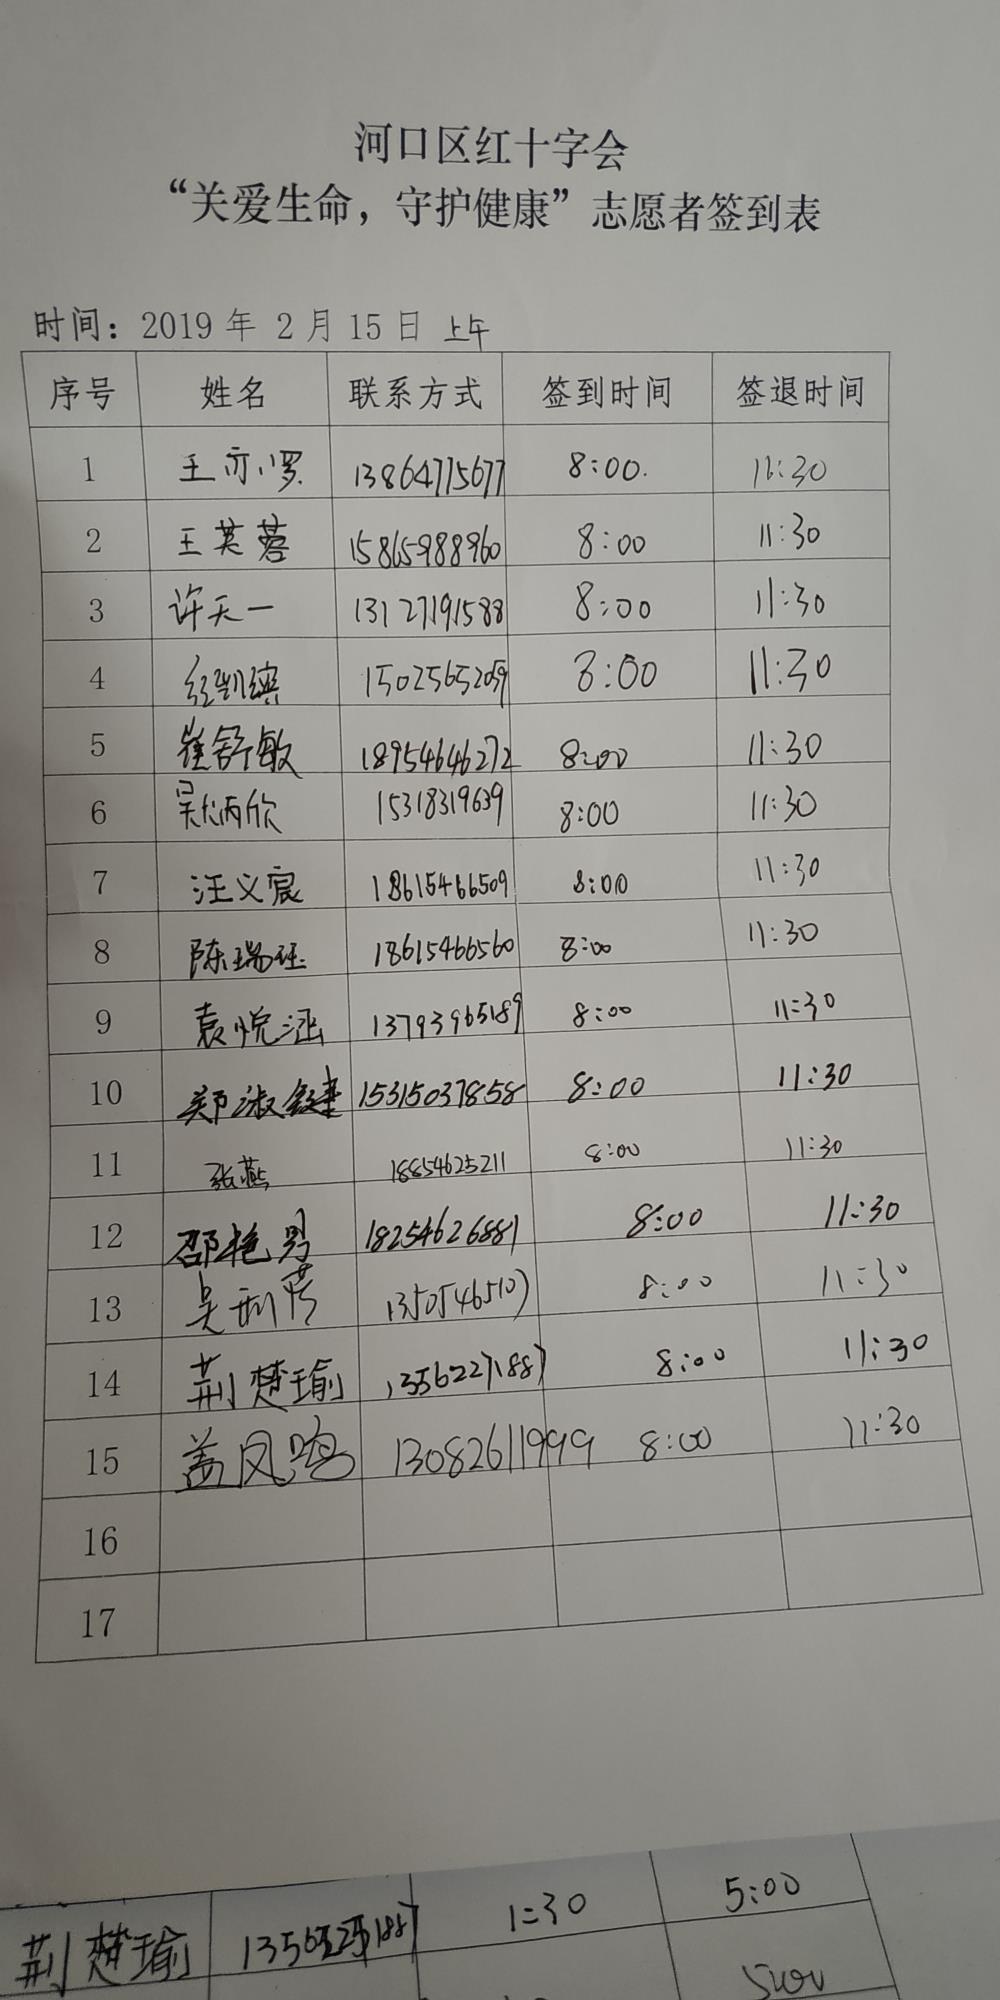 河口区红十字会
“关爱生命，守护健康”志愿者签到表
时间：2019 年 2 月 15 日 上午
序号 姓名 联系方式 签到时间 签退时间
1 王亦 13864775677 8:00. 11:30
2 王芙蓉 15865988960 8:00 11:30
3 许天一 13127191588 8:00 11:30
4 15025652059 8:00 11:30
5 崔舒敏 18954646272 8:00 11:30
6 吴炳欣 15318319639 8:00 11:30
7 汪义宸 18615466509 8:00 11:30
8 陈瑞珏 18615466560 8:00 11:30
9 袁悦涵 13793965189 8:00 11:30
10 郑淑 15315037858 8:00 11:30
11 张燕 18854625211 8:00 11:30
12 邵艳男 18254626881 8:00 11:30
13 吴 13505465107 8:00 11:30
14 荆楚瑜 13562271887 8:00 11:30
15 盖凤鸣 13082611999 8:00 11:30
16
17
荆楚瑜 1:30 5:00